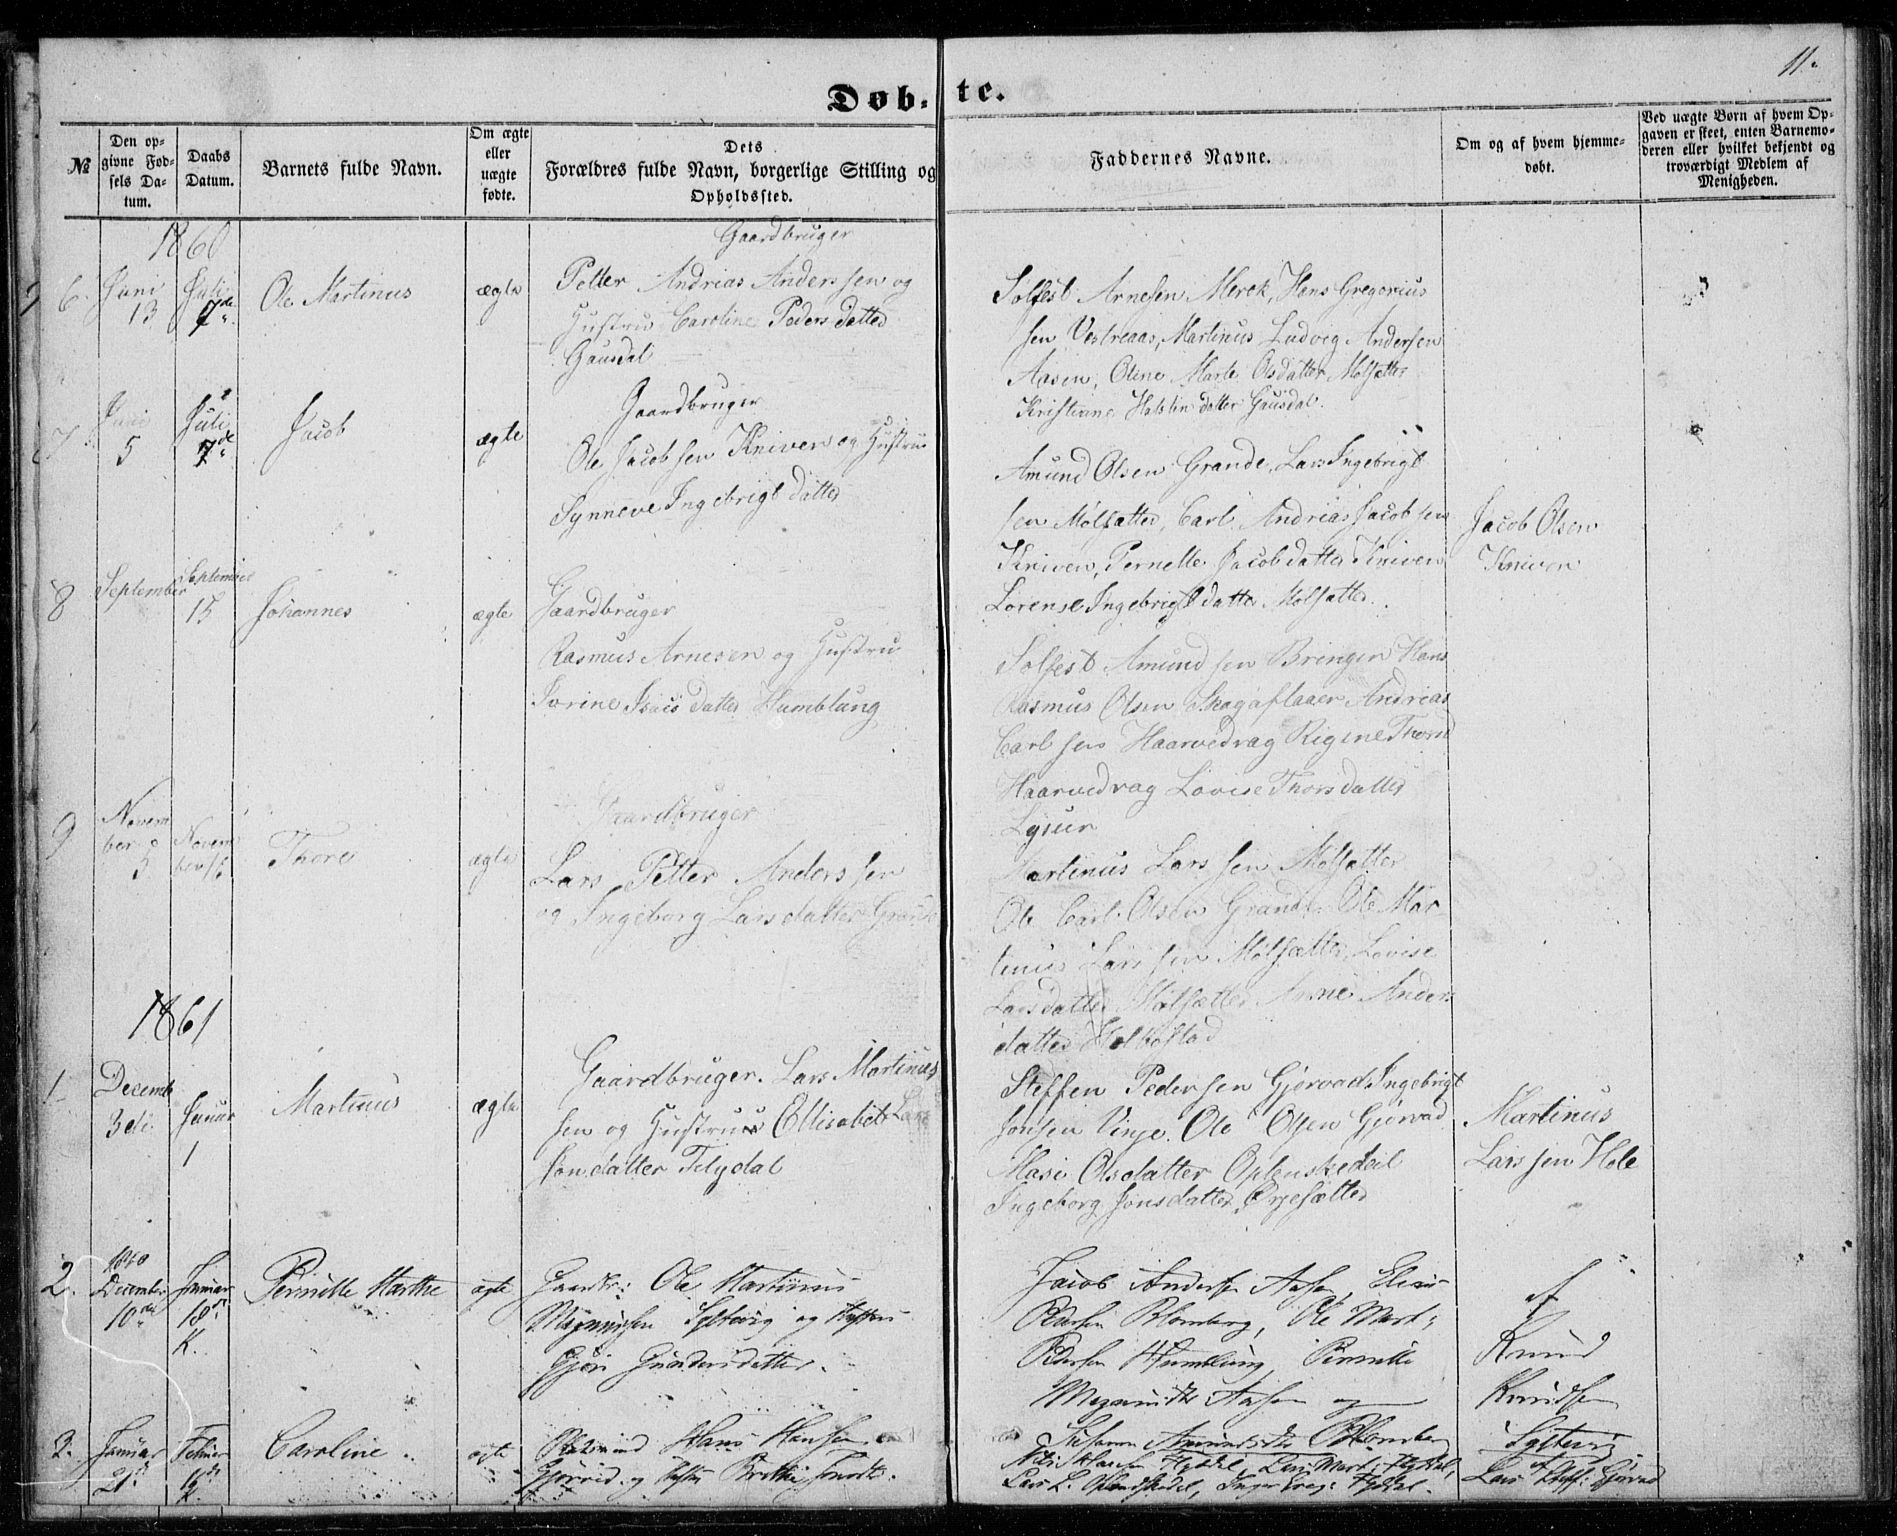 11.
Døb- te.
№
Den opgivne Fødsels Datum.
Daabs Datum.
Barnets fulde Navn.
Om ægte eller uægte fødte.
Dets Forældres fulde Navn, borgerlige Stilling og Opholdssted.
Faddernes Navne.
Om og af hvem hjemmedøbt.
Ved uægte Børn af hvem Opgaven er skeet, enten Barnemoderen eller hvilket bekjendt og troværdigt Medlem af Menigheden.
1860
6. Juni 13 Juli 7de Ole Martinus ægte
Gaardbruger
Petter Andrias Anderssen og
Hustru Caroline Peders datter
Gausdal
Solfest Arnesen Merok, Hans Gregorius
sen Vestreaas, Martinus Ludvig Andersen
Aasen, Oline Marte Olsdatter Molsætter
Kristiane Halstin datter Gausdal.
7 Juni 5 Juli 7de Jacob ægte
Gaardbruger
Ole Jacobsen Kniven og Hustrue
Synneve Ingebrigt datter
Amund Olsen Grande, Lars Ingebrigt
sen Molsætter, Carl Andrias Jacobsen
Kniven, Pernelle Jacobdatter Kniven
Lorense Ingebrigt datter Molsætter.
Jacob Olsen
Kniven
8 September September 15 Johannes ægte
Gaardbruger
Rasmus Arnesen og Hustru
Isaes datter Humblung
Solfest Amundsen Bringen Hans
Rasmus Olsen Skagaflaaer Andrias
Carlsen Haarvedrag Rigine Thors
Haarvedrag Lovise Thorsdatter
9 November 5 November Thore ægte
Gaardbruger
Lars Petter Anderssen
og Ingeborg Larsdatter Grande
Martinus Larssen Molsætter
Ole Carl Olsen Grande Ole Mar
tinus Larssen Molsætter Lovise
Larsdatter Molsætter Anne Anders
datter
1861
1 Decemb 3die Januar 1 Martinus ægte
Gaardbruger. Lars Martinus
sen og Hustrue Ellisabet Lars
datter
Steffen Pedersen Gjørvad Ingebrigt
Jonsen Vinje Ole Olsen Gjørvad
Olsdatter Oplenskedal
Ingeborg Jonsdatter Ørjesætter
Martinus
Larssen Hole
2. 1860 December 10de Januar 18de K. Pernille Marthe ægte
Gaardbr: Ole Martinus
Sylteviig og Hustru
Gjøri Gundersdatter.
Jacob Anderss Aasen,
Blomberg, Ole Mart:
Humlung, Pernille
Aasen og
Blomberg
af
Knud
Knudsen
Sylteviig
3. Januar 21de Februar K. Caroline. ægte
Hans Hansen
Brithe